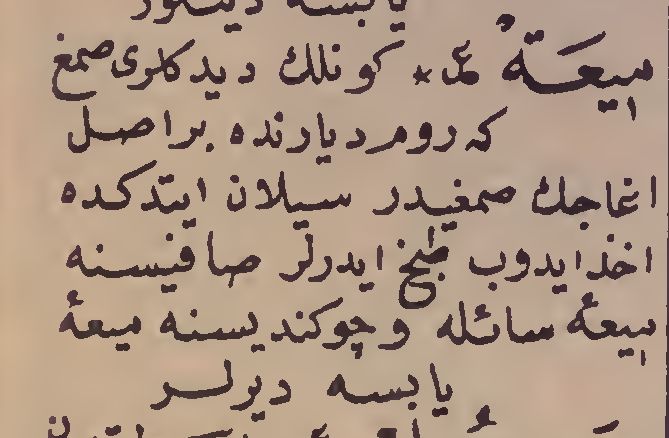 يابسه دينلور
ميعةٌ ع * كونلك ديدكلرى صمغ
كه روم ديارنده بر اصل
اغاجك صمغيدر سيلان ايتدكده
اخذ ايدوب طبخ ايدرلر صافيسنه
ميعهٔ سائله و چوكنديسنه ميعهٔ
يابسه ديرلر